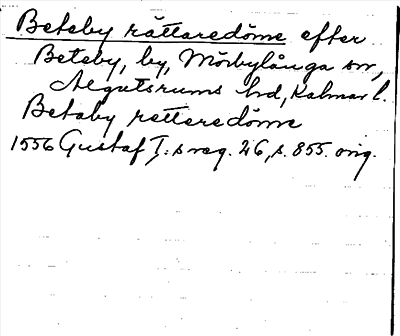 Beteby rättaredöme efter
Beteby, by, Mörbylånga sn,
Algutsrums hd, Kalmar l.
Betaby rettaredöme
1556 Gustaf I:s reg. 26, s. 855. orig.